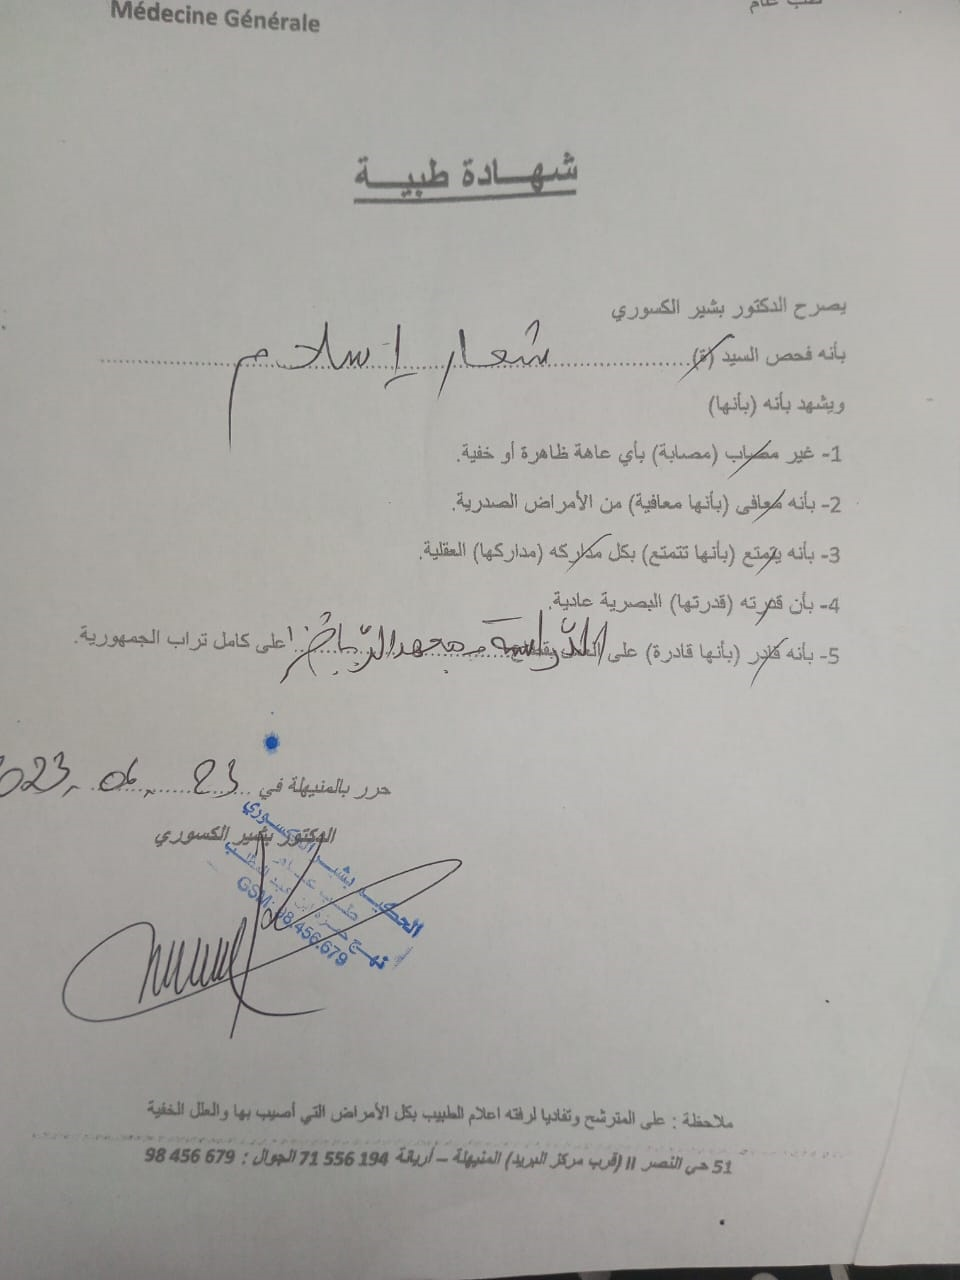 Médecine Générale
طب عام
شهادة طبية
يصرح الدكتور بشير الكسوري
بأنه فحص السيد (ة) شعار إسلام
ويشهد بأنه (بأنها)
1- غير مصاب (مصابة) بأي عاهة ظاهرة أو خفية.
2- بأنه معافى (بأنها معافية) من الأمراض الصدرية.
3- بأنه يتمتع (بأنها تتمتع) بكل مداركه (مداركها) العقلية.
4- بأن قدرته (قدرتها) البصرية عادية.
5- بأنه قادر (بأنها قادرة) على الدراسة بمعهد الرياضي على كامل تراب الجمهورية.
حرر بالمنيهلة في 23 .06. 2023
الدكتور بشير الكسوري
الحكيم بشير الكسوري
طب عام
نهج حمزة ابن عبد المطلب
GSM: 98.456.679
ملاحظة : على المترشح وتفاديا لرفته اعلام الطبيب بكل الأمراض التي أصيب بها والعلل الخفية
51 حي النصر II (قرب مركز البريد) المنيهلة – أريانة 194 556 71 الجوال : 679 456 98